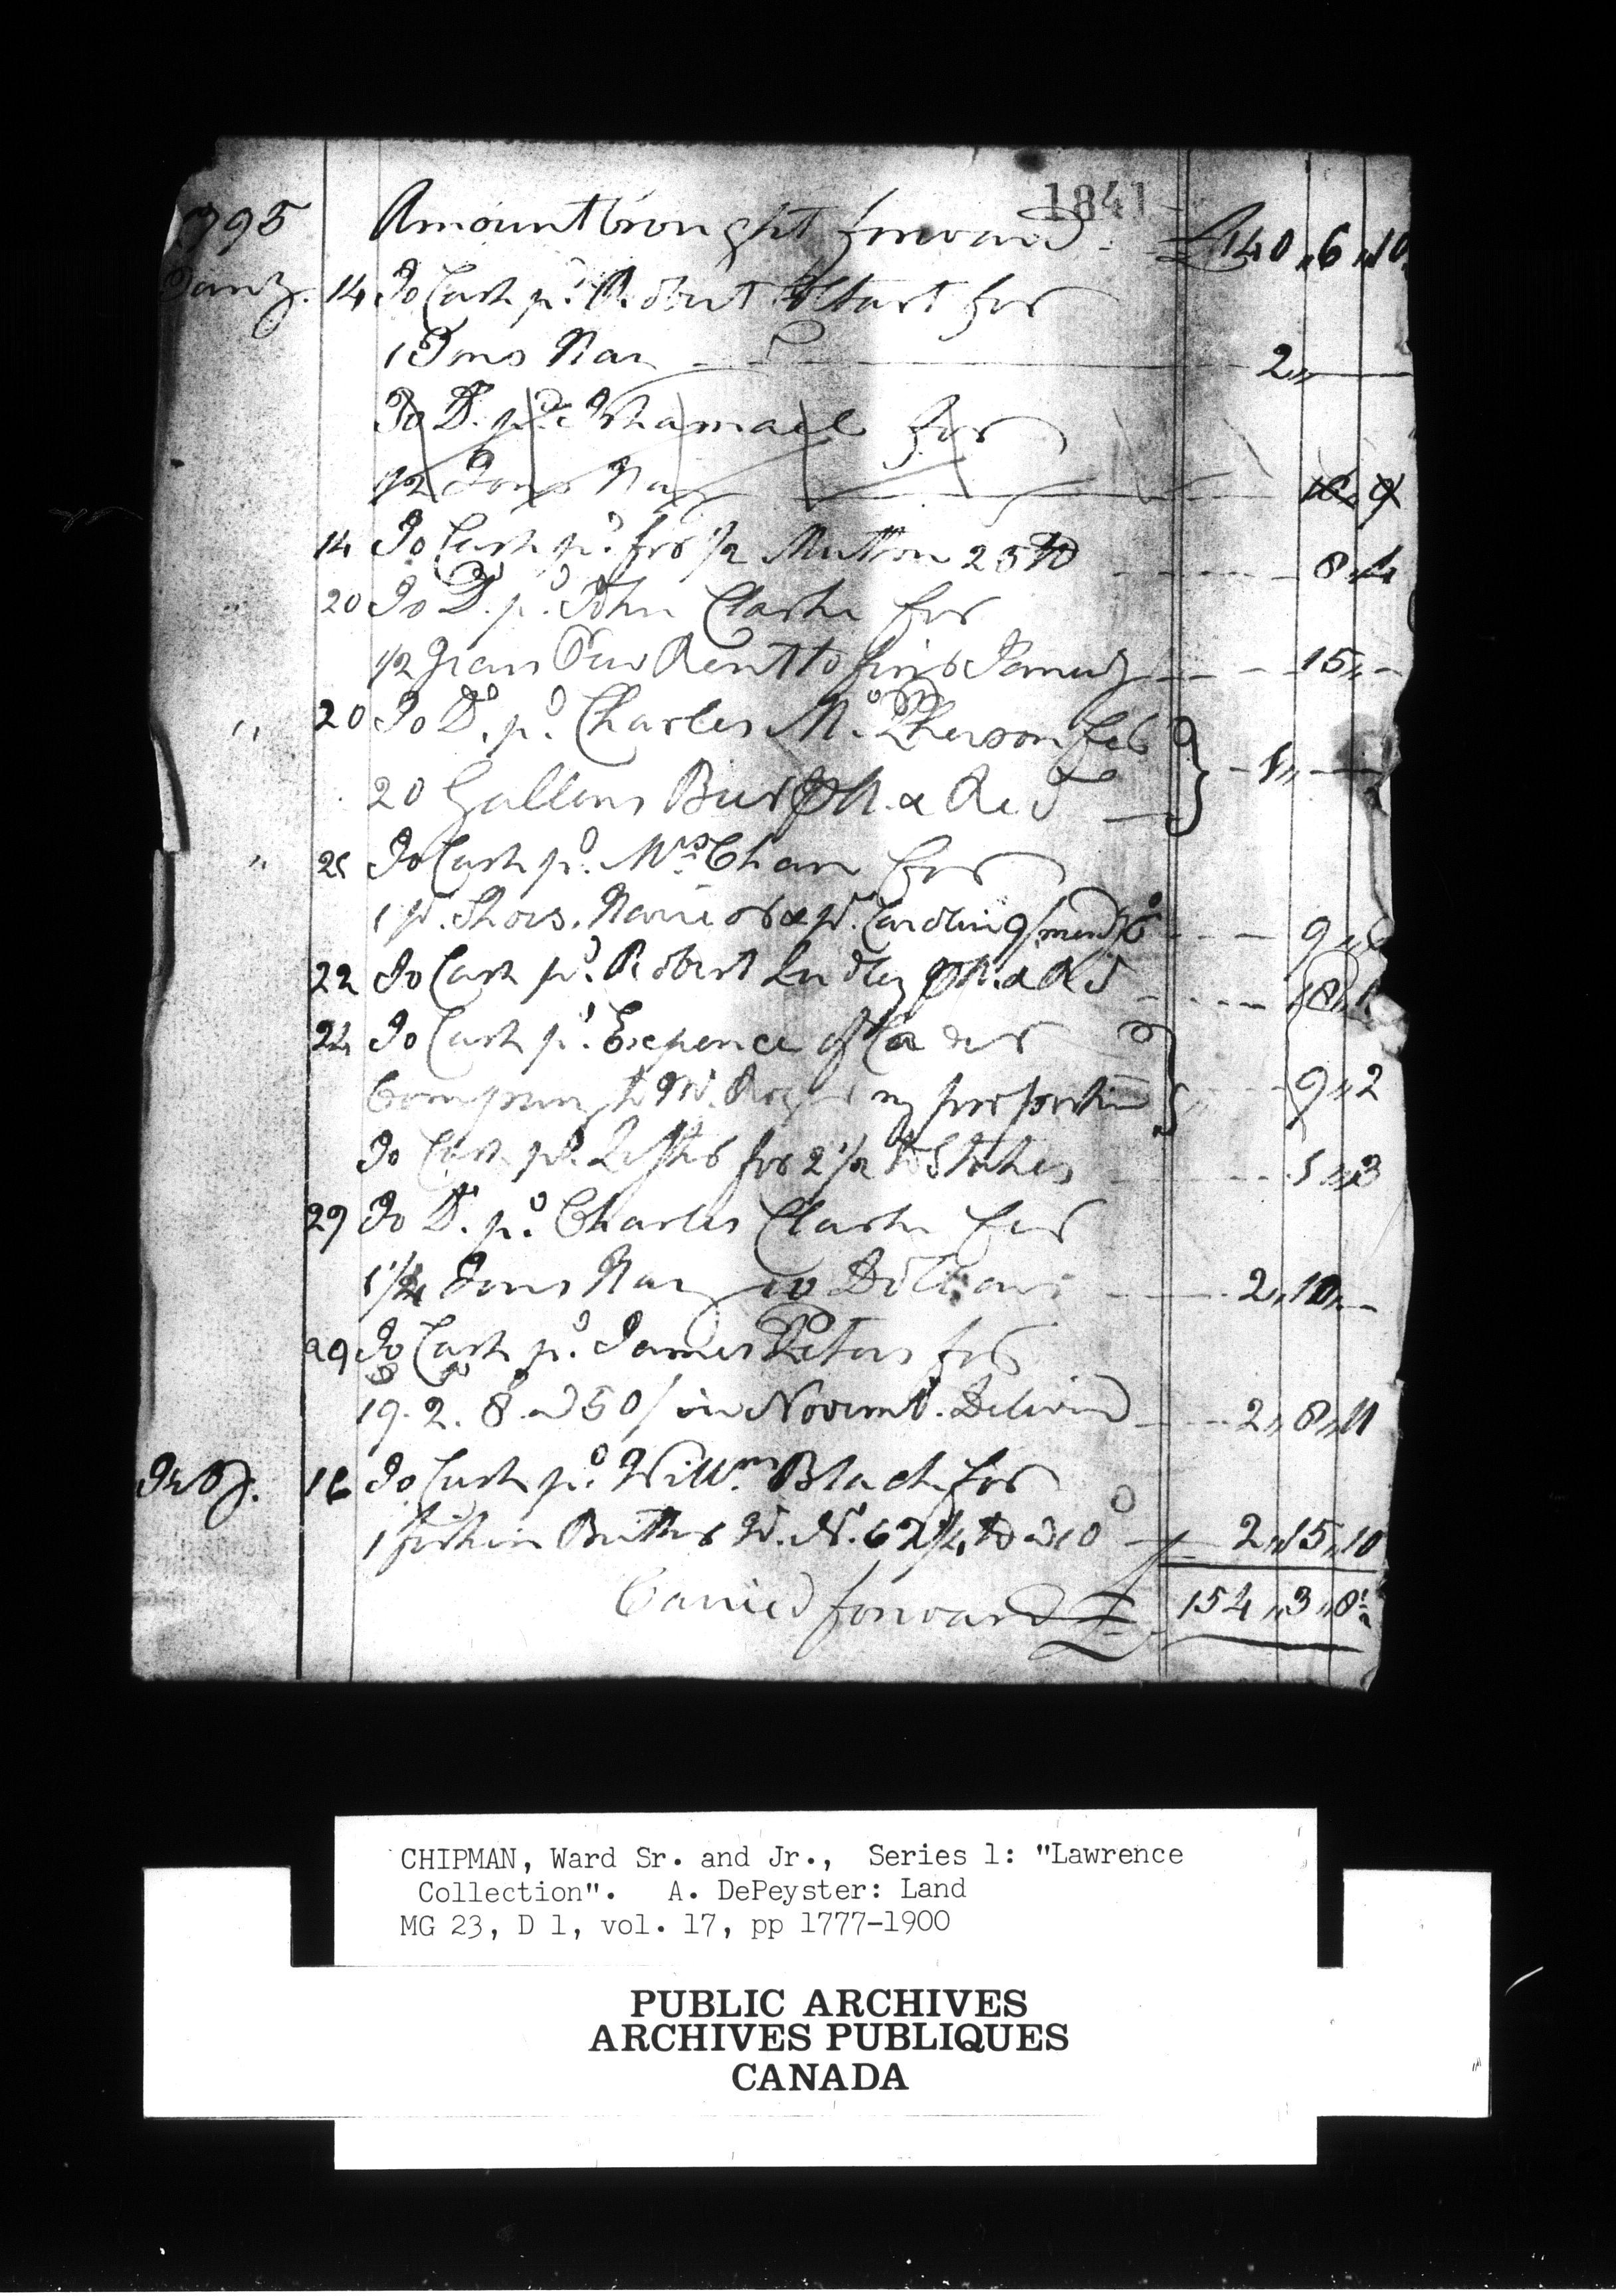 1841
1795 Amount brought forward £140,,6,,10
Jany. 14 To Cash pd. Robert Start for
1 Tons Hay 2,,
To Do. pd. for
1/2 Tons Hay
14 To Cash pd. for 1/2 Mutton 25 lb 8,,4
" 20 To Do. pd. John Clarke for
1/2 Years Pew Rent to first Jany 15,,
" 20 To Do. pd. Charles Mc.Pherson for
20 Gallons Beer & Red 1,,
" 21 To Cash pd. Mrs. Chace for
1 pr. Shoes. & pr. Caroline's mend 9,,
22 To Cash pd. Robert Ludley & Red
24 To Cash pd. Expence of
Company to my proportion 9,,2
To Cash pd. Lester for 2 1/2 lb Stakes 1,,3
29 To Do. pd. Charles Clarke for
1 1/4 Tons Hay 2,,10,,
29 To Cash pd. James Peters for
19. 2. 8. a 50/ in Novembr. Delivered 2,,8,,11
Feby. 16 To Cash pd. Willm. Black for
1 firkin Butter W. N. 62 1/4 lb a 10 2,,15,,10
Carried forward £ 154,,3,,8
CHIPMAN, Ward Sr. and Jr., Series 1: "Lawrence
Collection". A. DePeyster: Land
MG 23, D 1, vol. 17, pp 1777-1900
PUBLIC ARCHIVES
ARCHIVES PUBLIQUES
CANADA